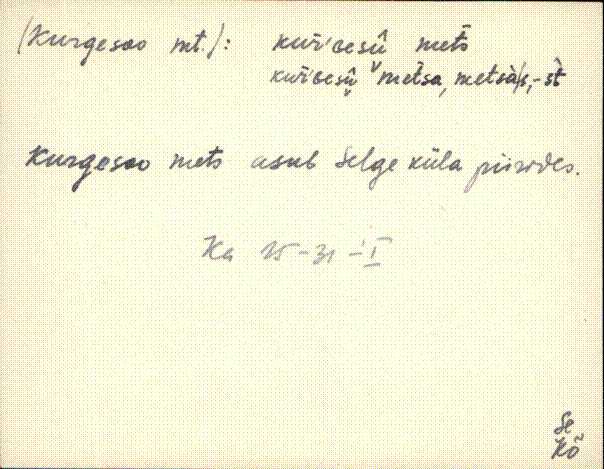 (Kurgesoo mt.): kuŕɢesū̬ mets
kuŕɢesū̬ metsa, metsas, -st
Kurgesoo mets asub Selge küla piirides.
Ka 25-31-I
Se
Kõ